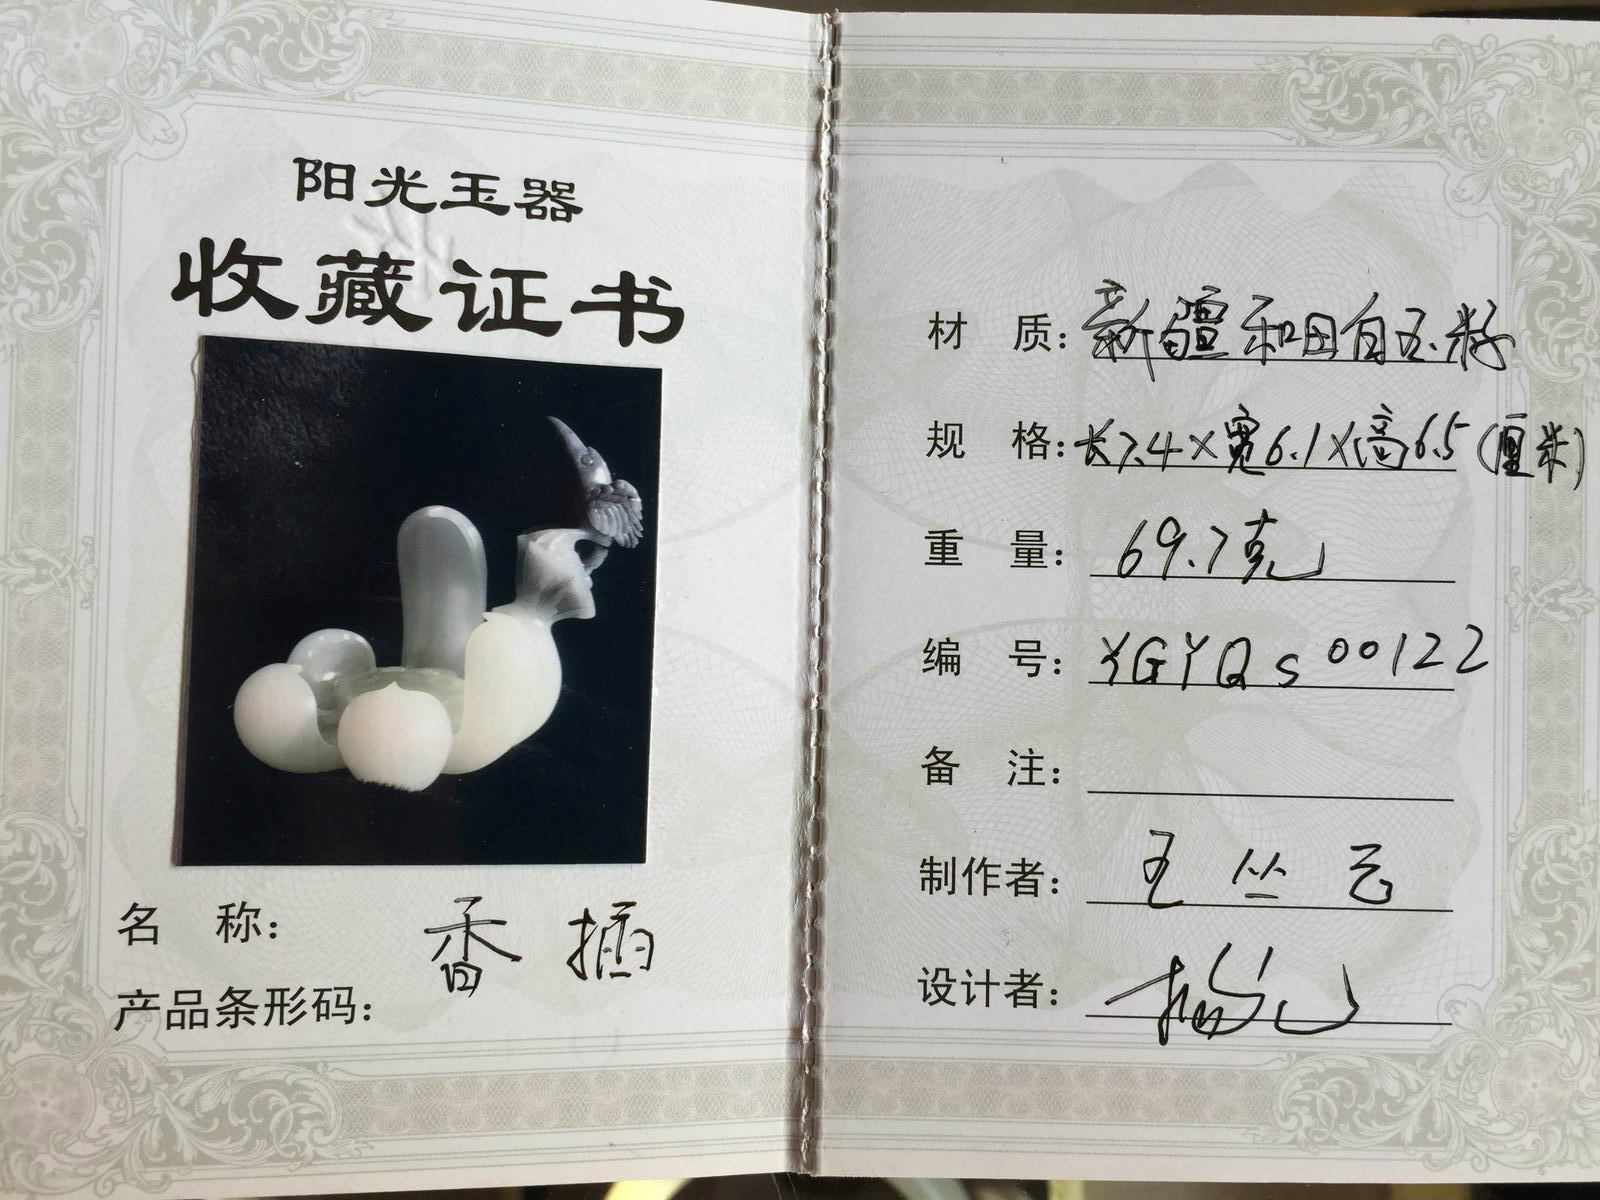 阳光玉器
收藏证书
名 称： 香插
产品条形码：
材 质： 新疆和田白玉籽
规 格： 长7.4×宽6.1×高6.5（厘米）
重 量： 69.7克
编 号： YGYQs00122
备 注：
制作者： 王丛云
设计者：